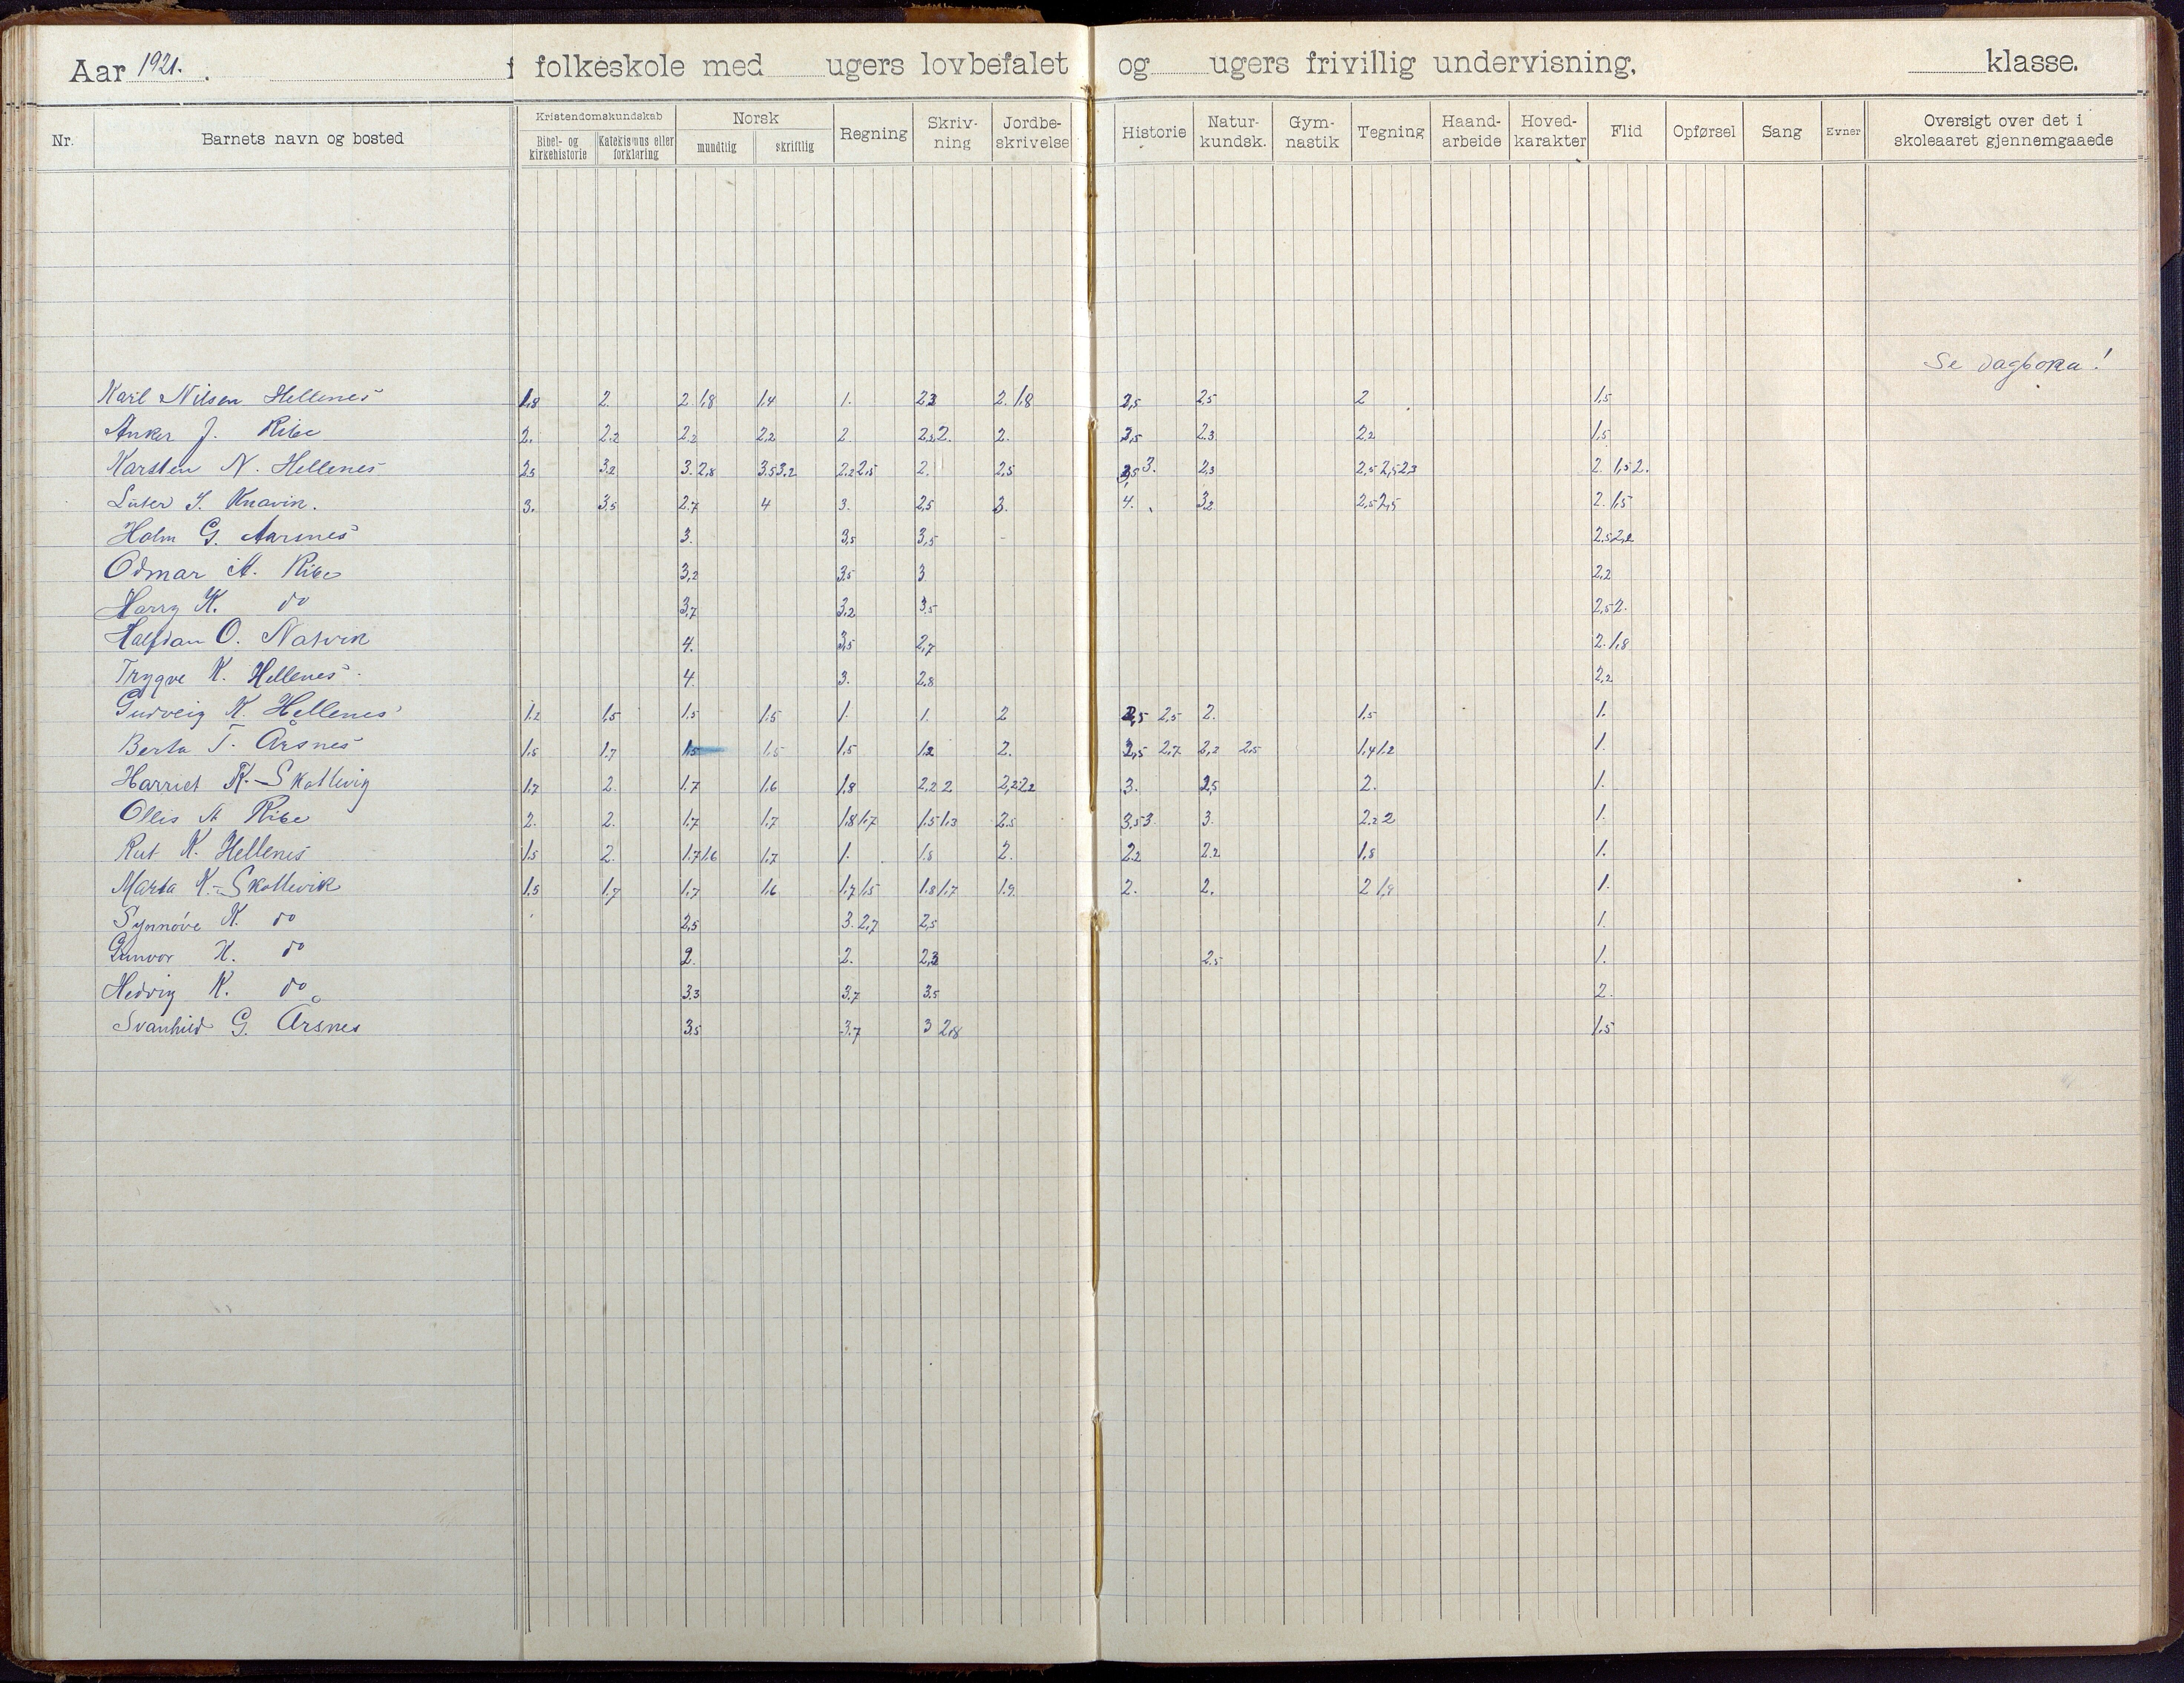 Aar 1921. f folkeskole med ugers lovbefalet og ugers frivillig undervisning, klasse.
Nr. Barnets navn og bosted Kristendomskundskab Bibel- og kirkehistorie Katekismus eller forklaring Norsk mundtlig skriftlig Regning Skriv-ning Jordbe-skrivelse Historie Natur-kundsk. Gym-nastik Tegning Haand-arbeide Hoved-karakter Flid Opførsel Sang Evner Oversigt over det i skoleaaret gjennemgaaede
Se dagboka!
Karl Nilsen Hellenes 1,8 2. 2. 1,8 1.4 1. 2.3 2. 1.8 2,5 2,5 2 1,5
Anker J. Ribe 2. 2.2 2.2 2,2 2 2.2 2. 2. 3,5 2.3 2.2 1,5
Karsten N. Hellenes 3,5 3.2 3. 2,8 3.5 3.2 2.2 2.5 2. 2,5 3,5 3. 2,3 2.5 2,5 2.3 2. 1,5 2.
Luter S. Knavin. 3. 3.5 2.7 4 3. 2,5 3. 4. 3.2 2,5 2,5 2. 1,5
Holm G. Aarsnes 3. 3,5 3,5 2.5 2,2
Odmar A. Ribe 3,2 3.5 3 2,2
Harry K. do 3,7 3,2 3.5 2,5 2.
Halfdan O. Natvik 4. 3,5 2,7 2. 1,8
Trygve K. Hellenes 4. 3. 2.8 2,2
Gudveig K. Hellenes 1.2 1,5 1.5 1.5 1. 1. 2 2,5 2,5 2. 1,5 1.
Berta T. Årsnes 1.5 1.7 1.5 1.5 1,5 1.2 2. 2,5 2.7 2,2 2.5 1,4 1.2 1.
Harriet K. Skottevig 1.7 2. 1.7 1.6 1.8 2,2 2 2,2 2.2 3. 2,5 2. 1.
Ollis A Ribe 2. 2. 1.7 1.7 1.8 1.7 1.5 1.3 2.5 3.5 3. 3. 2.2 2 1.
Rut K. Hellenes 1.5 2. 1.7 1.6 1.7 1. 1.8 2. 2.2 2.2 1,8 1.
Marta K. Skottevik 1.5 1.7 1.7 1.6 1.7 1.5 1.8 1.7 1.9 2. 2. 2 1,8 1.
Synnøve K. do 2,5 3. 2,7 2,5 1.
Gunvor K. do 2. 2. 2,3 2.5 1.
Hedvig K. do 3.3 3.7 3.5 2.
Svanhild G. Årsnes 3.5 3.7 3 2.8 1.5